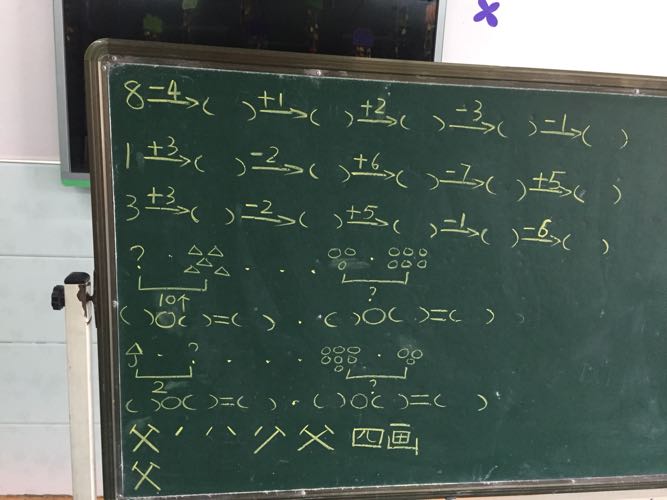 8 -4→( ) +1→( ) +2→( ) -3→( ) -1→( )
1 +3→( ) -2→( ) +6→( ) -7→( ) +5→( )
3 +3→( ) -2→( ) +5→( ) -1→( ) -6→( )
?
10个 ?
( )○( )=( ) ( )○( )=( )
?
2 ?
( )○( )=( ) ( )○( )=( )
父 ノ 八 父 四画
父